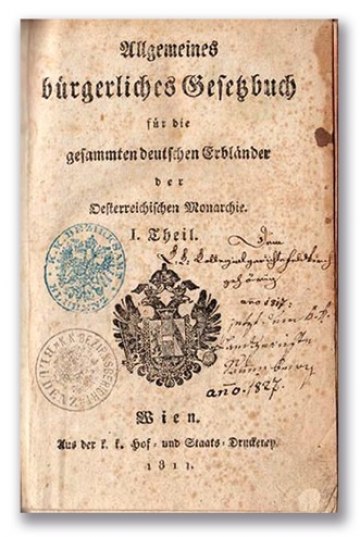 Allgemeines
bürgerliches Gesetzbuch
für die
gesammten deutschen Erbländer
der
Oesterreichischen Monarchie.
I. Theil.
Dem
gehörig
ano 1817.
jetzt dem k. k.
año. 1827.
K. K. BEZIRKSAMT
Wien.
Aus der k. k. Hof- und Staats-Druckerey.
1811.